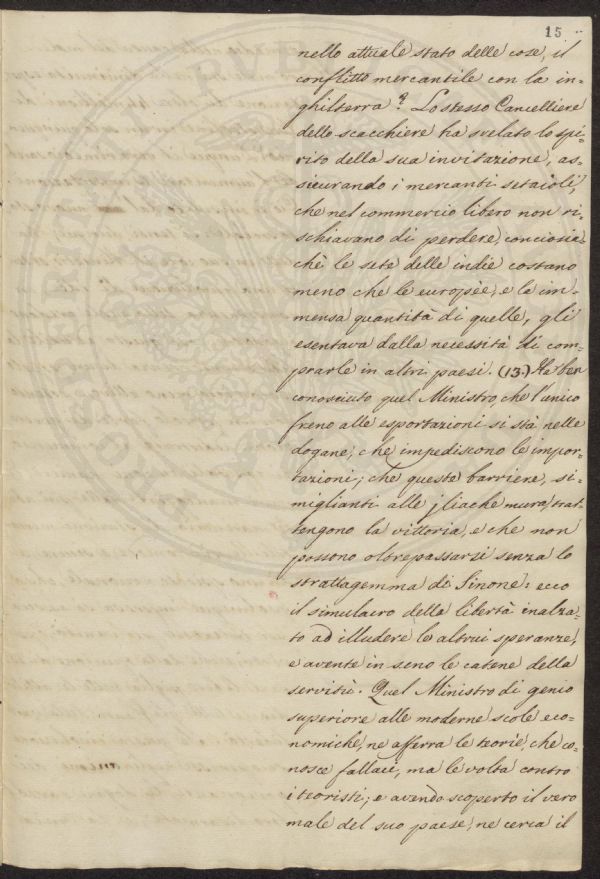 15
nello attuale stato delle cose, il
conflitto mercantile con la in=
ghilterra? Lo stesso Cancelliere
dello scacchiere ha svelato lo spi=
rito della sua invitazione, as=
sicurando i mercanti setaioli,
che nel commercio libero non ri=
schiavano di perdere, conciosia=
chè le sete delle indie costano
meno che le europèe, e la im=
mensa quantità di quelle, gli
esentava dalla necessità di com=
prarle in altri paesi. (13.) Ha ben
conosciuto quel Ministro, che l'unico
freno alle esportazioni si stà nelle
dogane, che impediscono le impor=
tazioni; che queste barriere, si=
miglianti alle iliache mura, trat=
tengono la vittoria, e che non
possono oltrepassarsi senza lo
strattagemma di Sinone: ecco
il simulacro della libertà inalza=
to ad illudere le altrui speranze,
e avente in seno le catene della
servitù. Quel Ministro di genio
superiore alle moderne scole eco=
nomiche, ne afferra le teorie, che co=
nosce fallaci, ma le volta contro
i teoristi; e avendo scoperto il vero
male del suo paese, ne cerca il